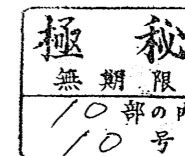 極秘
無期限
10部の内
10号